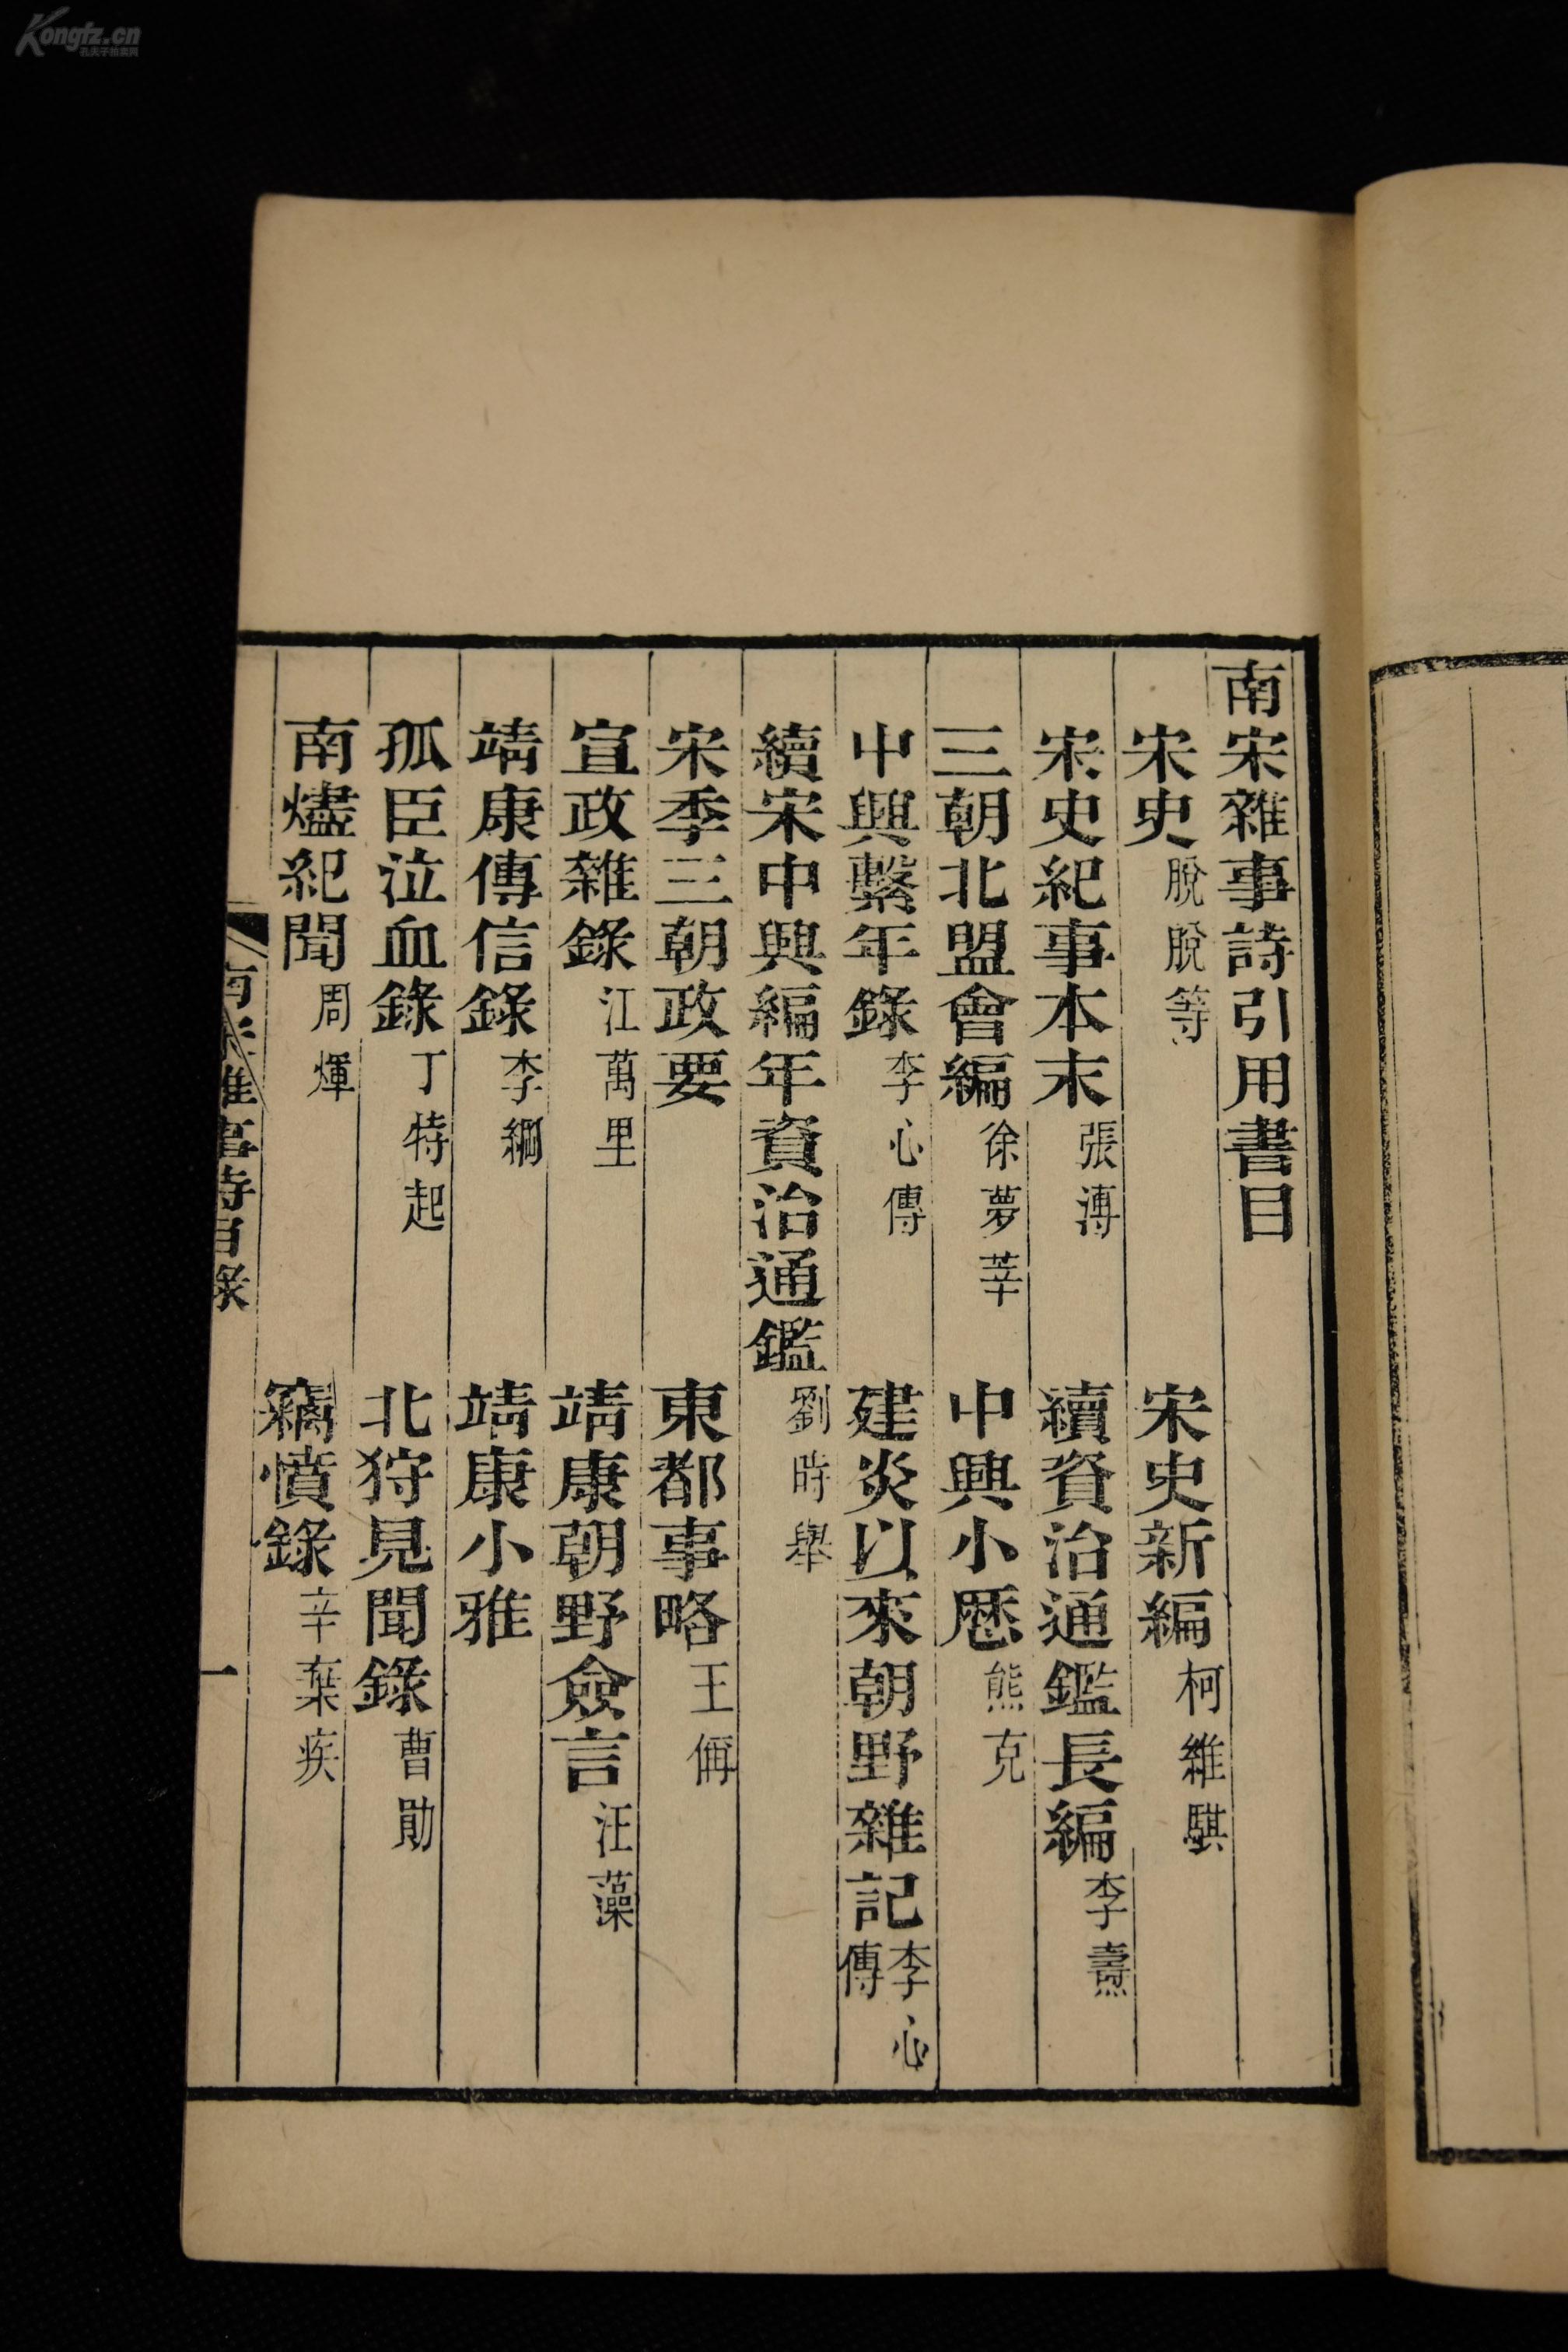 Kongfz.cn
孔夫子拍卖网
南宋雜事詩引用書目
宋史 脫脫等 宋史新編 柯維騏
宋史紀事本末 張溥 續資治通鑑長編 李燾
三朝北盟會編 徐夢莘 中興小歷 熊克
中興繫年錄 李心傳 建炎以來朝野雜記 李心傳
續宋中興編年資治通鑑 劉時舉
宋季三朝政要 東都事略 王偁
宣政雜錄 江萬里 靖康朝野僉言 汪藻
靖康傳信錄 李綱 靖康小雅
孤臣泣血錄 丁特起 北狩見聞錄 曹勛
南燼紀聞 周煇 竊憤錄 辛棄疾
南宋雜事詩目錄
一